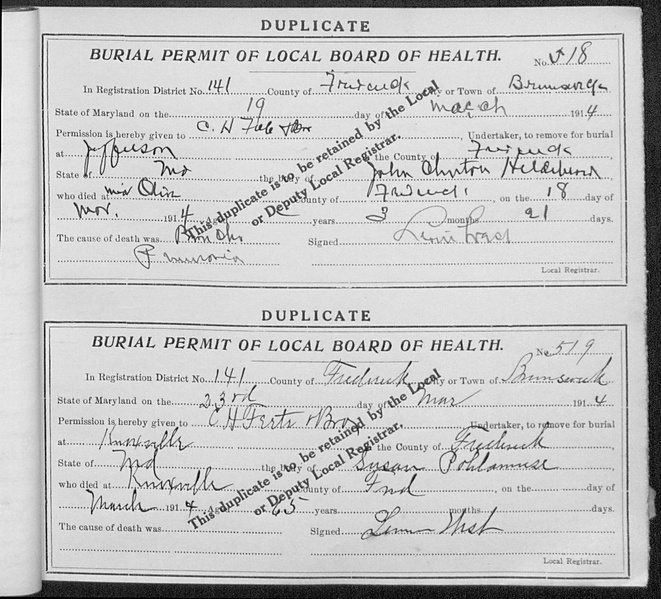 DUPLICATE
BURIAL PERMIT OF LOCAL BOARD OF HEALTH.
No. 518
In Registration District No. 141 County of Frederick City or Town of Brunswick
State of Maryland on the 19 day of March 1914
Permission is hereby given to C. H & Bro Undertaker, to remove for burial
at Jefferson in the County of Frederick
State of Md the body of John Clinton
who died at County of Fredrick, on the 18 day of
Mar. 1914 years 3 months 21 days.
The cause of death was Broncho Signed
Pneumonia
Local Registrar.
This duplicate is to be retained by the Local
or Deputy Local Registrar.
DUPLICATE
BURIAL PERMIT OF LOCAL BOARD OF HEALTH.
No. 519
In Registration District No. 141 County of Frederick City or Town of Brunswick
State of Maryland on the 23rd day of Mar 1914
Permission is hereby given to C. H & Bro Undertaker, to remove for burial
at Knoxville in the County of Frederick
State of Md the body of Susan
who died at Knoxville County of Fred, on the day of
March 1914 65 years months days.
The cause of death was Signed
Local Registrar.
This duplicate is to be retained by the Local
or Deputy Local Registrar.